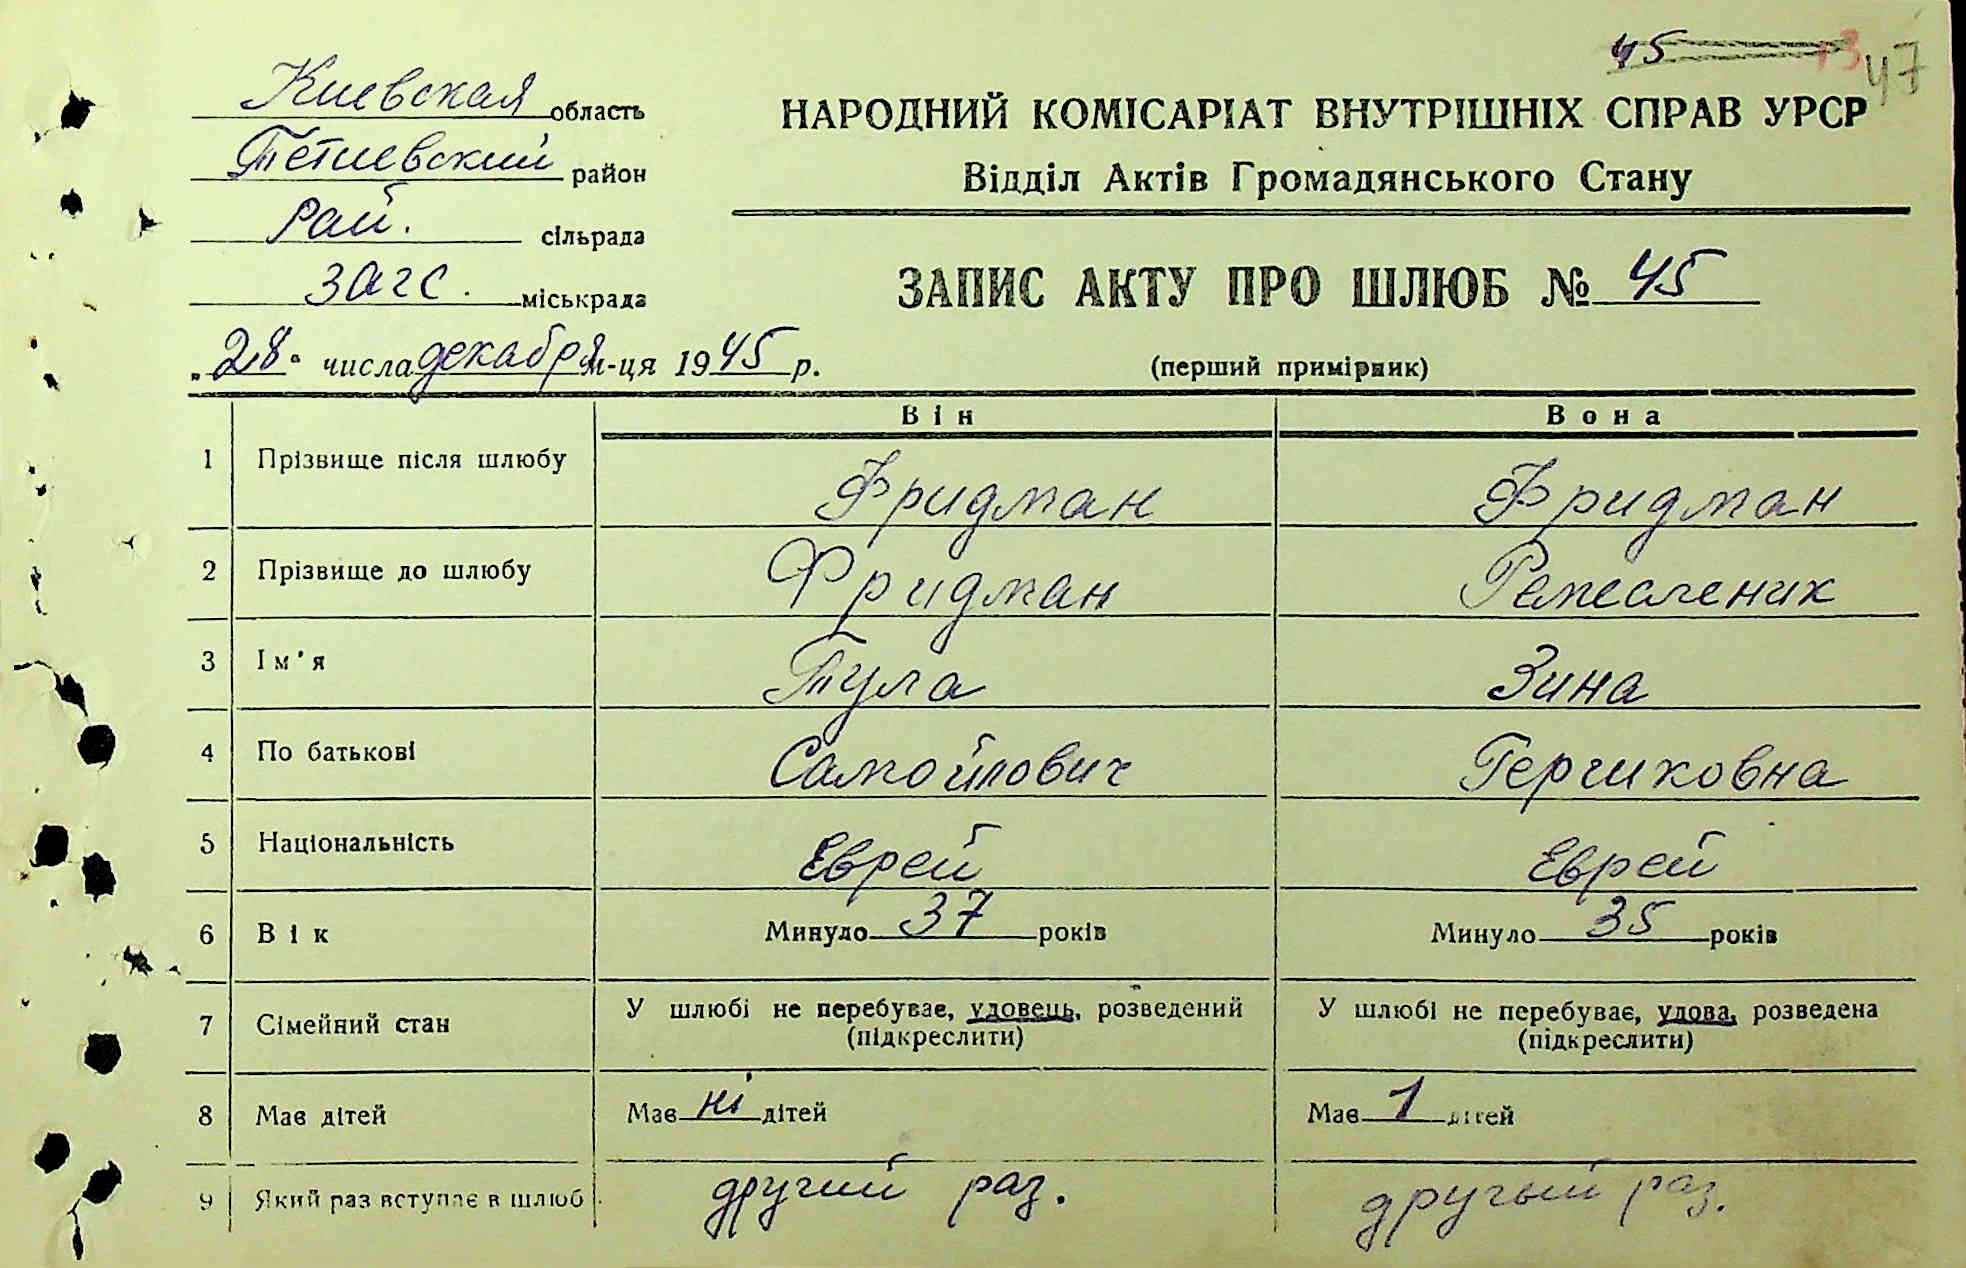 45 13 47
Киевская область
Тетиевский район
Рай. сільрада
загс. міськрада
НАРОДНИЙ КОМІСАРІАТ ВНУТРІШНІХ СПРАВ УРСР
Відділ Актів Громадянського Стану
ЗАПИС АКТУ ПРО ШЛЮБ № 45
„28“ числа декабря м-ця 1945 р.
(перший примірник)
Він Вона
1 Прізвище після шлюбу Фридман Фридман
2 Прізвище до шлюбу Фридман
3 Ім'я Тула Зина
4 По батькові Самойлович Гершковна
5 Національність Еврей Еврей
6 Вік Минуло 37 років Минуло 35 років
7 Сімейний стан У шлюбі не перебуває, удовець, розведений У шлюбі не перебуває, удова, розведена
(підкреслити) (підкреслити)
8 Має дітей Має ні дітей Має 1 дітей
9 Який раз вступає в шлюб другий раз. другый раз.